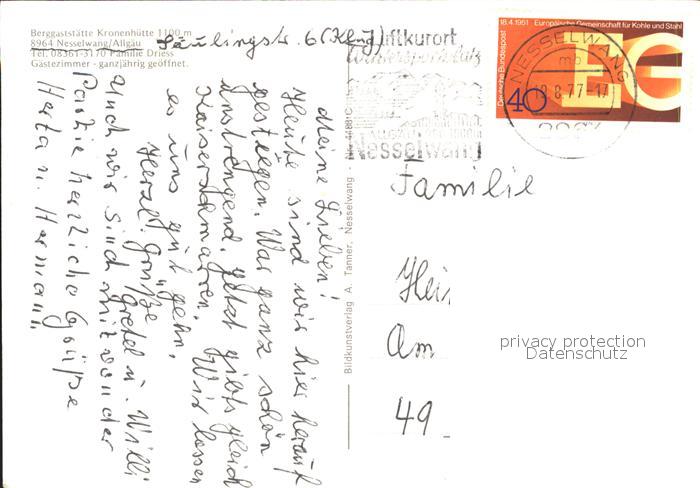 Berggaststätte Kronenhütte 1100 m
8964 Nesselwang/Allgäu
Tel. 08361-3170 Familie Driess
Gästezimmer - ganzjährig geöffnet.
Säulingstr. 6 (Klug)
Meine Lieben!
Heute sind wir hier herauf
gestiegen. War ganz schön
anstrengend, jetzt gibts gleich
Kaiserschmarren. Wir lassen
es uns gut gehn.
Herzl. Grüße
Gretel u. Willi
auch wir sind mit von der
Partie herzliche Grüße
Herta u. Hermann
Bildkunstverlag A. Tanner, Nesselwang
Luftkurort
Wintersportplatz
Nesselwang
18.4.1951 Europäische Gemeinschaft für Kohle und Stahl
Deutsche Bundespost
40
EG
NESSELWANG
mb
18.8.77-17
Familie
Hei
Am
49
privacy protection
Datenschutz